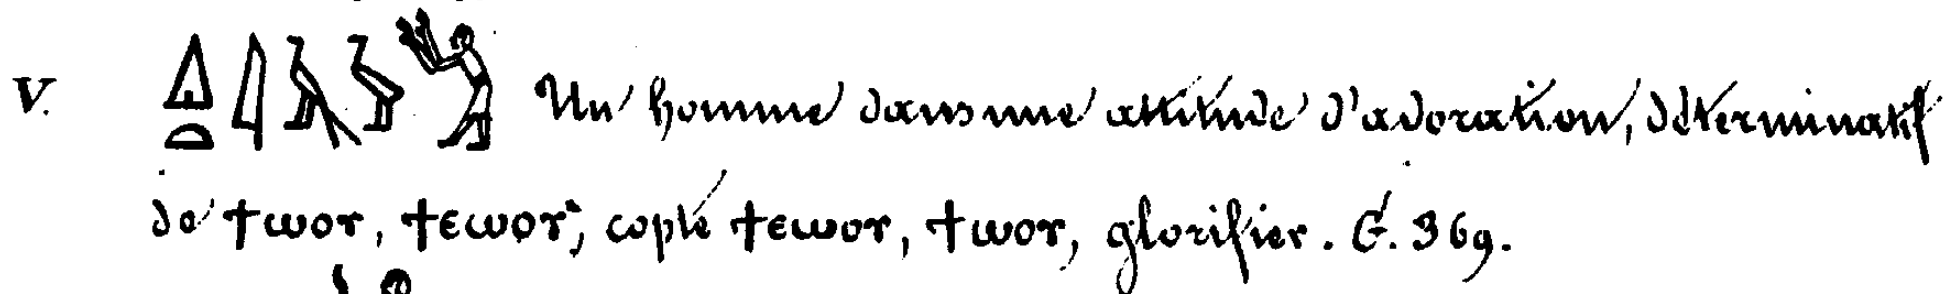 V. Un homme dans une attitude d'adoration, déterminatif
de ϯωοτ, ϯεωοτ, copte ϯεωοτ, ϯωοτ, glorifier. G. 369.